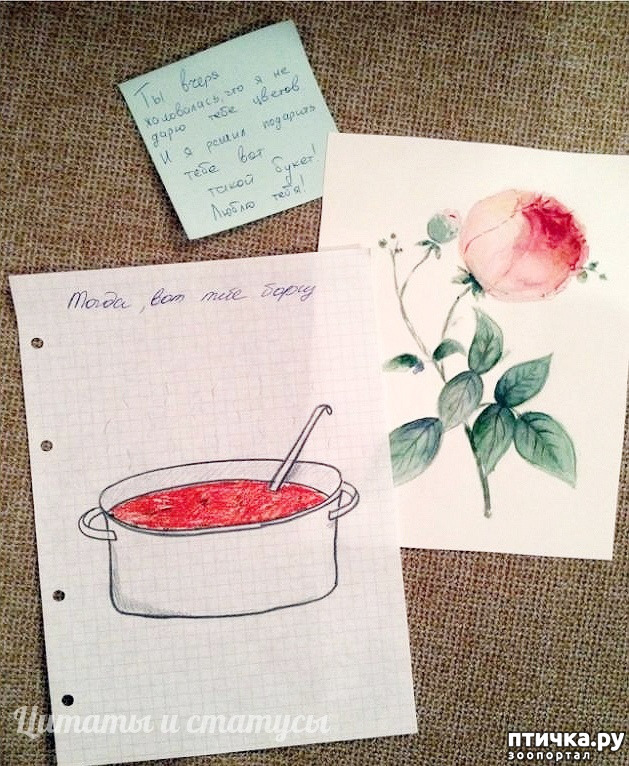 Ты вчера
жаловалась, что я не
дарю тебе цветов
И я решил подарить
тебе вот
такой букет!
Люблю тебя!
Тогда, вот тебе борщ
Цитаты и статусы
птичка.ру
зоопортал